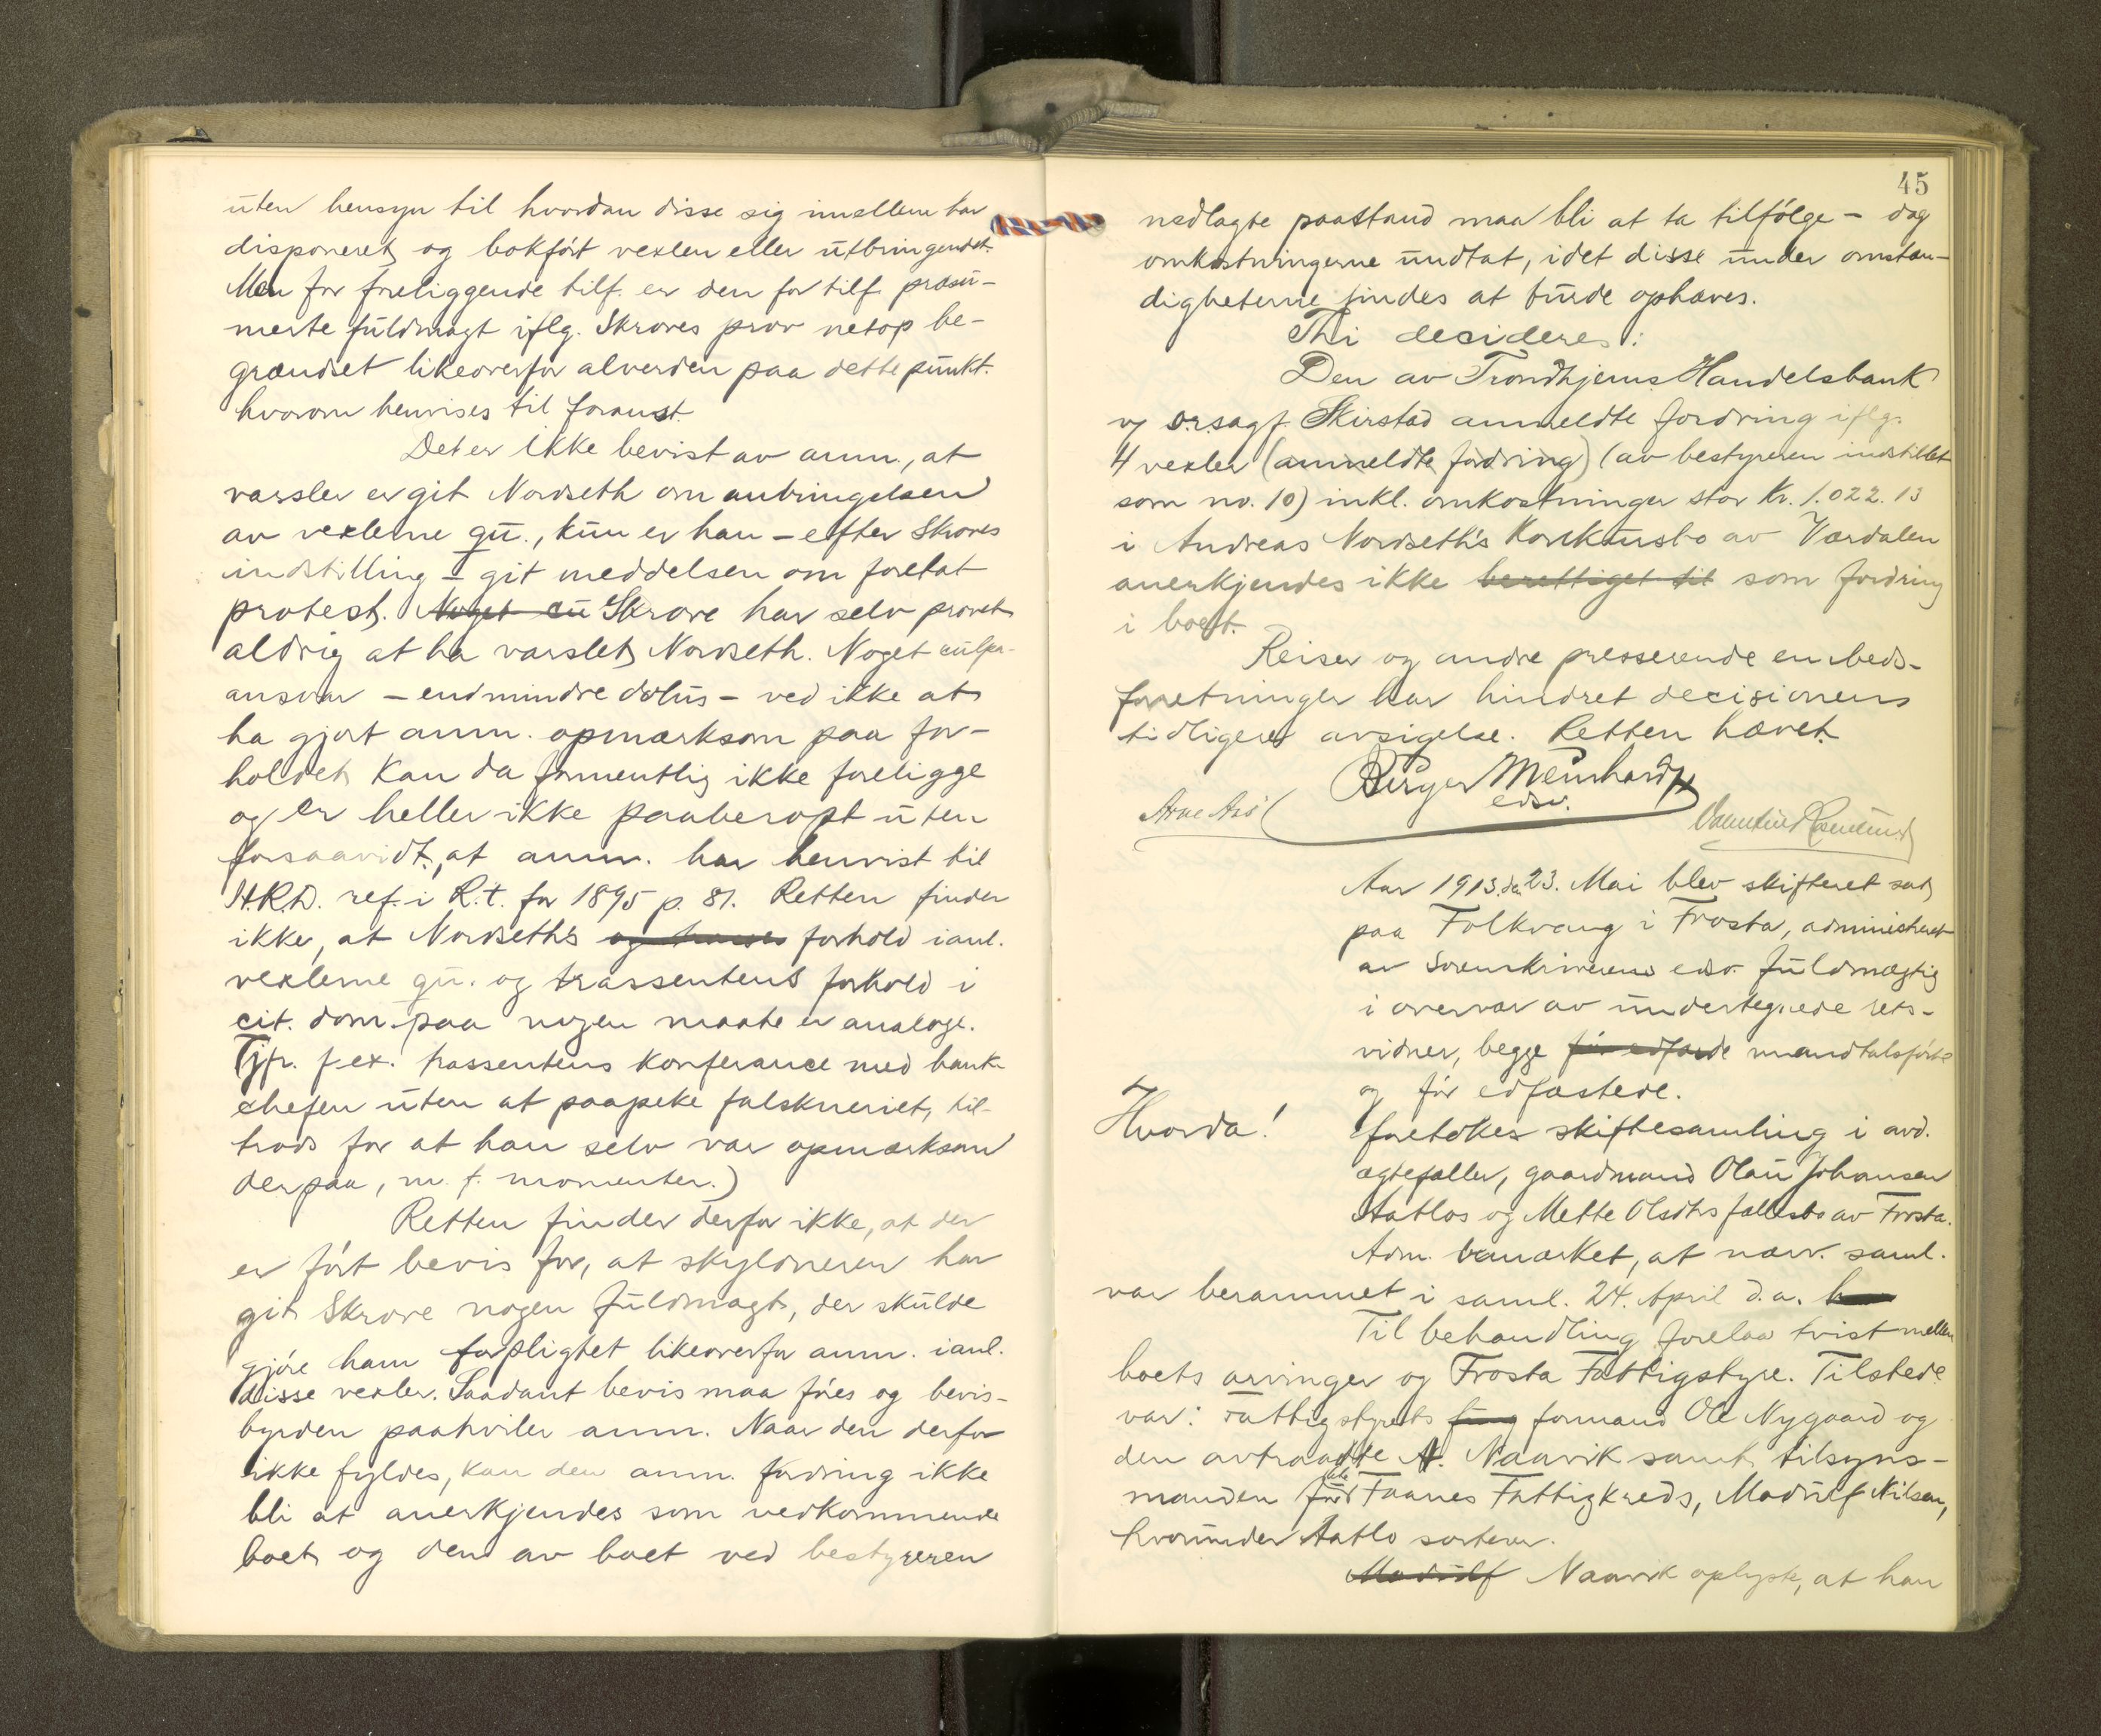 uten hensyn til hvordan disse sig imellem har
disponeret og bokført vexlen eller utbringendet.
Men for foreliggende tilf. er den for tilf. præsu-
merte fuldmagt iflg. Skroves prov netop be-
grændset likeoverfor alverden paa dette punkt.
hvorom henvises til foranst.
Det er ikke bevist av anm., at
varsler er git Nordseth om anbringelsen
av vexlerne qu., kun er han – efter Skroves
indstilling – git meddelsen om foretat
protest. Noget cu Skrove har selv provet
aldrig at ha varslet Nordseth. Noget culpa-
ansvar – endmindre dolus – ved ikke at
ha gjort anm. opmærksom paa for-
holdet kan da formentlig ikke foreligge
og er heller ikke paaberopt uten
forsaavidt, at anm. har henvist til
H.R.D. ref. i R.t. for 1895 p. 81. Retten finder
ikke, at Nordseth's forhold ianl.
vexlerne qu. og trassentens forhold i
cit. dom paa nogen maate er analoge.
Tjfr. f.ex. trassentens konferance med bank-
chefen uten at paapeke falskneriet, til-
trods for at han selv var opmærksom
derpaa, m. f. momenter.)
Retten finder derfor ikke, at der
er ført bevis for, at skyldneren har
git Skrove nogen fuldmagt, der skulde
gjøre ham forpligtet likeoverfor anm. ianl.
disse vexler. Saadant bevis maa føres og bevis-
byrden paahviler anm. Naar den derfor
ikke fyldes, kan den anm. fordring ikke
bli at anerkjendes som vedkommende
boet og den av boet ved bestyreren
45
nedlagte paastand maa bli at ta tilfølge – dog
omkostningerne undtat, idet disse under omstæn-
digheterne findes at burde ophæves.
Thi decideres:
Den av Trondhjems Handelsbank
v/ o.r.sagf. Skirstad anmeldte fordring iflg.
4 vexler (anmeldte fordring) (av bestyreren indstillet
som no. 10) inkl. omkostninger stor Kr. 1.022.13
i Andreas Nordseth's konkursbo av Værdalen
anerkjendes ikke berettiget til som fordring
i boet.
Reiser og andre presserende embeds-
forretninger har hindret decisionens
tidligere avsigelse. Retten hævet.
Birger Meinhardt
edsv.
Arne Asö
Valentin
Aar 1913 den 23. Mai blev skifteret sat
paa Folkvang i Frosta, administreret
av sorenskriverens edsv. fuldmægtig
i overvær av undertegnede rets-
vidner, begge før edfæste mandtalsførte
og før edfæstede.
Hvorda!
foretokes skiftesamling i avd.
ægtefæller, gaardmand Olaus Johansen
Aatlos og Mette Olsdtrs fællesbo av Frosta.
Adm. bemærket, at nærv. saml.
var berammet i saml. 24. April d.a.
Til behandling forelaa tvist mellem
boets arvinger og Frosta Fattigstyre. Tilstede
var: Fattigstyrets formand Ole Nygaard og
den avtraadte A. Naavik samt tilsyns-
manden for Faanes Fattigkreds, Madulf Nilsen,
hvorunder Aatlo sorterer.
Madulf Naavik oplyste, at han